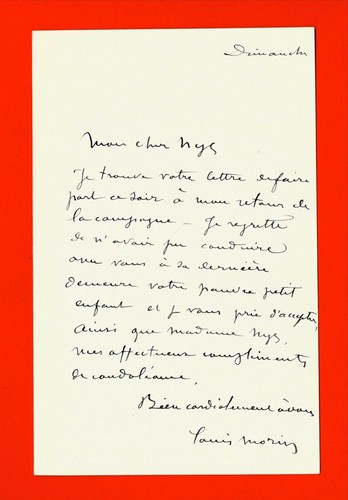 Dimanche
Mon cher Nys
Je trouve votre lettre de faire
part ce soir à mon retour de
la campagne — Je regrette
de n'avoir pu conduire
avec vous à sa dernière
demeure votre pauvre petit
enfant et vous prie d'accepter,
ainsi que Madame Nys,
mes affectueux compliments
de condoléance.
Bien cordialement à vous
Louis Morin